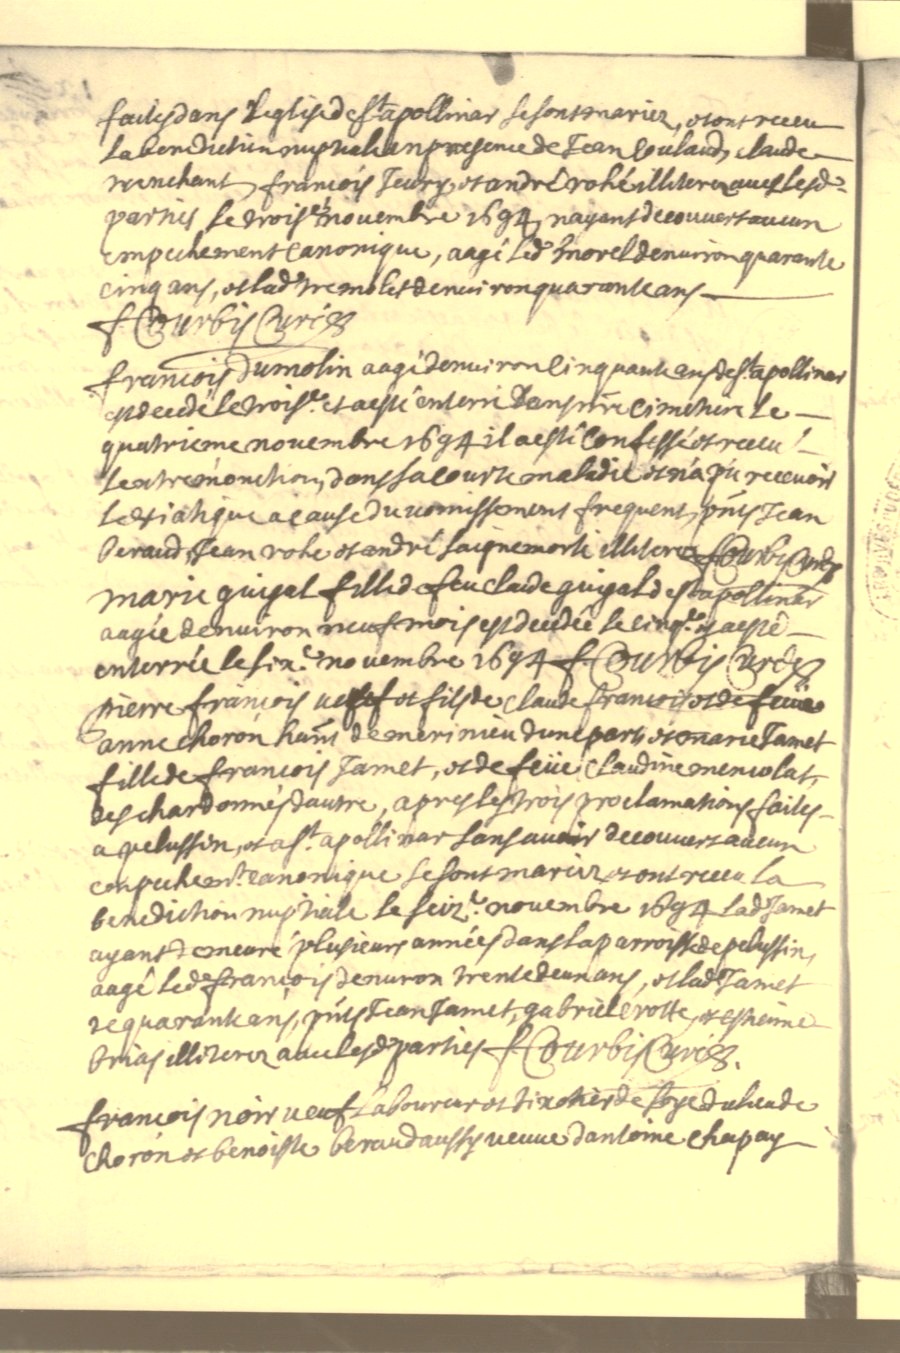 faites dans l'eglise de St apollinar se sont mariez, et ont receu
la benediction nuptiale en presence de Jean Coulaud, claude
trenchant, françois Jeury, et andré rohé illiterez avec lesd.
parties le trois.e novembre 1694, n'ayant decouvert aucun
empechement canonique, aagé led. morel d'environ quarante
cinq ans, et lad. tremolet d'environ quarante ans
f. Courbis Curé
françois Dumolin aagé d'environ cinquante ans de St. apollinar
est decedé le trois.e et a esté enterré dans n.re cimetiere le
quatrieme novembre 1694 il a esté confessé et receu
l'extremonction, dans sa courte maladie et n'a pu recevoir
le viatique a cause du vomissement frequent, pnts Jean
beraud, Jean rohe et andré saignemorte illiterez f. Courbis Curé
marie guigal fille de feu claude guigal de St apollinar
aagée d'environ neuf mois est decedée le cinq.e et a esté
enterrée le six.e novembre 1694 f. Courbis Curé
pierre françois veuf et fils de claude françois et de feüe
anne choron hant de d'une part, et marie Jamet
fille de françois Jamet, et de feüe Claudine mencolat,
des chardonnés d'autre, apres les trois proclamations faites
a pelussin, et a St. apollinar sans avoir decouvert aucun
empechemt. canonique se sont mariez et ont receu la
benediction nuptiale le seiz.e novembre 1694 lad. Jamet
ayant demeuré plusieurs années dans la parroisse de pelussin,
aagé led. françois d'environ trente deux ans, et lad. Jamet
de quarante ans, pnts Jean Jamet, gabriel erotte, et estienne
brias illiterez avec lesd. parties f. Courbis Curé.
françois noir veuf laboureur et de soye du lieu de
choron et benoiste beraud aussy veuve d'antoine chapay